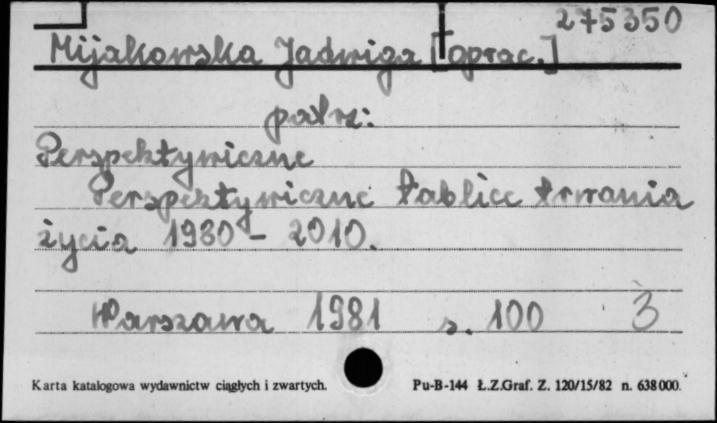 275350
Mijakowska Jadwiga [oprac.]
patrz:
Perspektywiczne
Perspektywiczne tablice trwania
życia 1980 - 2010.
Warszawa 1981 s. 100 3
Karta katalogowa wydawnictw ciągłych i zwartych. Pu-B-144 Ł.Z.Graf. Z. 120/15/82 n. 638000.